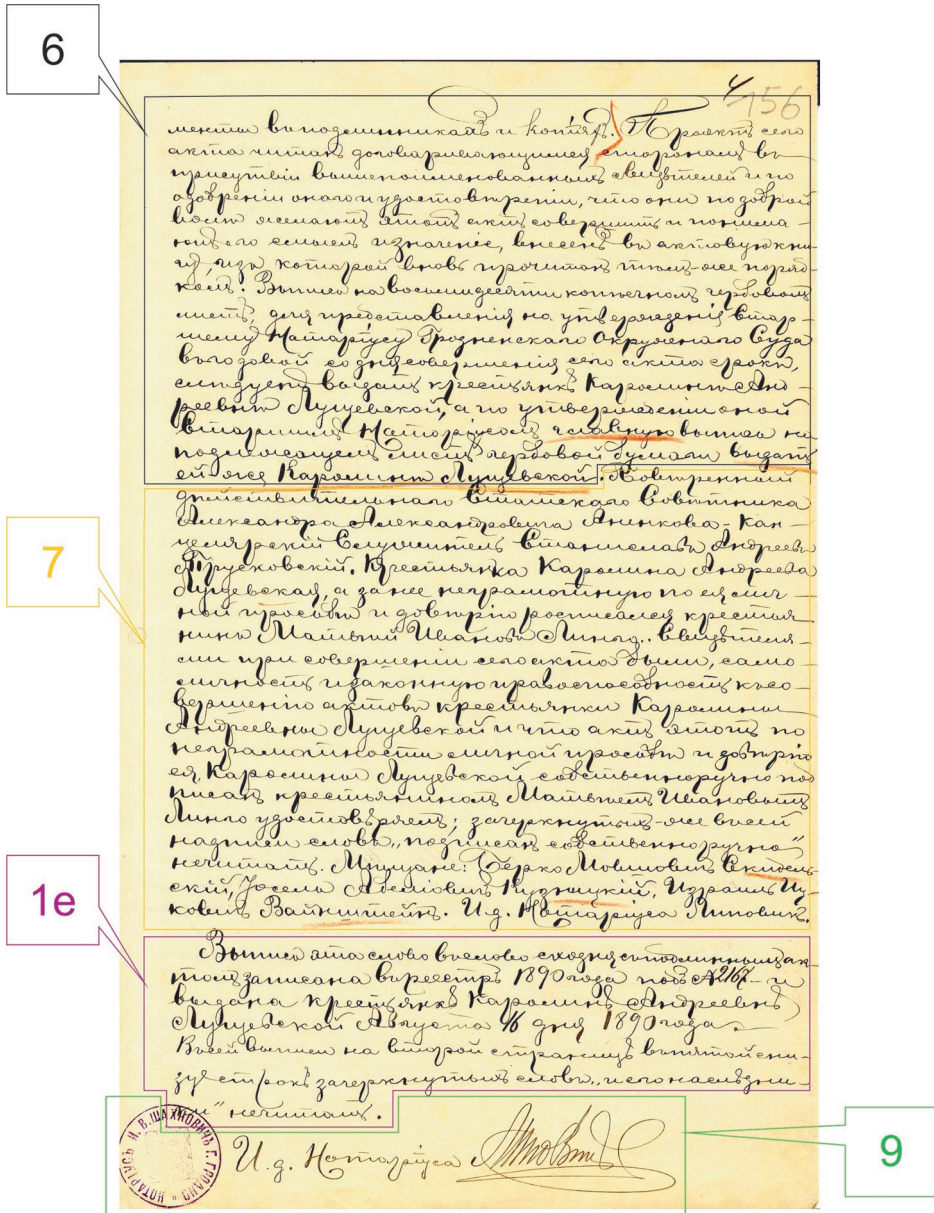 6
156
менты въ подлинникахъ и копіяхъ. Проектъ сего
акта читанъ договаривающимся сторонамъ въ
присутствіи вышепоименованныхъ свидѣтелей и по
одобреніи онаго и удостовѣреніи, что они по доброй
волѣ желаютъ этотъ актъ совершить и понима-
ютъ его смыслъ и значеніе, внесенъ въ актовую кни-
гу, изъ которой вновь прочитанъ тѣмъ-же поряд-
комъ. Выпись на восьмидесяти копѣечномъ гербовомъ
листѣ, для представленія на утвержденія Стар-
шему Нотаріусу Гродненскаго Окружнаго Суда
въ годовой со дня совершенія сего акта срокъ,
слѣдуетъ выдать крестьянкѣ Каролинѣ Анд-
реевнѣ Лущевской, а по утвержденіи оной
Старшимъ Нотаріусомъ главную выпись на
подлежащемъ листѣ гербовой бумаги выдать
ей-же Каролинѣ Лущевской. Повѣренный
7
дѣйствительнаго Статскаго Совѣтника
Александра Александровича Аненкова - Кан-
целярскій Служитель Станиславъ Андреевъ
Трусковскій. Крестьянка Каролина Андреева
Лущевская, а за нее неграмотную по ея лич-
ной просьбѣ и довѣрію росписался крестья-
нинъ Матвѣй Ивановъ Линго. Свидѣтеля-
ми при совершеніи сего акта были, само-
личность и законную правоспособность къ со-
вершенію актовъ крестьянки Каролины
Андреевны Лущевской и что актъ этотъ по
неграмотности личной просьбѣ и довѣрію
ея, Каролины Лущевской собственноручно под
писанъ крестьяниномъ Матвѣемъ Ивановымъ
Линго удостовѣряемъ; зачеркнутыхъ-же въ сей
надписи словъ „подписанъ собственноручно"
нечитать. Мѣщане: Берко Мовшовичъ Скидель-
скій, Іосель Абелювичъ Кузницкій, Израиль Иц-
ковичъ Вайнштейнъ. И.д. Нотаріуса Липовичъ.
1e
Выпись эта слово въ слово сходная съ подлиннымъ ак-
томъ записана въ реестръ 1890 года подъ № 2167 - и
выдана крестьянкѣ Каролинѣ Андреевнѣ
Лущевской Августа 16 дня 1890 года.
Въ сей выписи на второй страницѣ въ пятой сни-
зу строкѣ зачеркнутыхъ словъ „и его наслѣдни-
ки" нечитать.
9
И. д. Нотаріуса
НОТАРІУСЪ Н. В. ШАХНОВИЧЪ Г. ГРОДНО